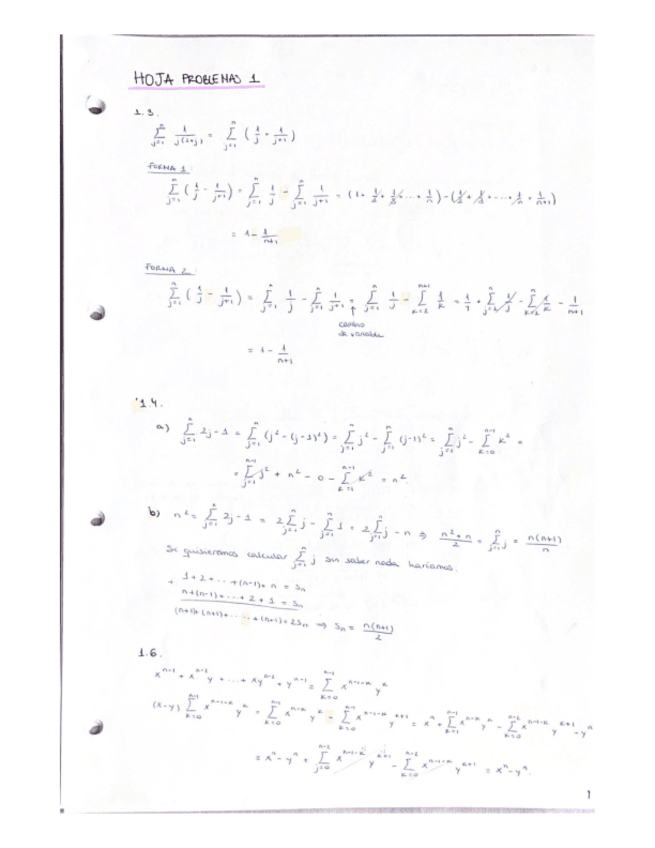 HOJA PROBLEMAS 1
1.3.
∑_{j=1}^{n} 1/(j(1+j)) = ∑_{j=1}^{n} (1/j - 1/(j+1))
FORMA 1:
∑_{j=1}^{n} (1/j - 1/(j+1)) = ∑_{j=1}^{n} 1/j - ∑_{j=1}^{n} 1/(j+1) = (1 + 1/2 + 1/3 + ... + 1/n) - (1/2 + 1/3 + ... + 1/n + 1/(n+1))
= 1 - 1/(n+1)
FORMA 2:
∑_{j=1}^{n} (1/j - 1/(j+1)) = ∑_{j=1}^{n} 1/j - ∑_{j=1}^{n} 1/(j+1) = ∑_{j=1}^{n} 1/j - ∑_{k=2}^{n+1} 1/k = 1/1 + ∑_{j=2}^{n} 1/j - ∑_{k=2}^{n} 1/k - 1/(n+1)
cambio
de variable
= 1 - 1/(n+1)
1.4.
a) ∑_{j=1}^{n} 2j-1 = ∑_{j=1}^{n} (j² - (j-1)²) = ∑_{j=1}^{n} j² - ∑_{j=1}^{n} (j-1)² = ∑_{j=1}^{n} j² - ∑_{k=0}^{n-1} k² =
= ∑_{j=1}^{n-1} j² + n² - 0 - ∑_{k=1}^{n-1} k² = n²
b) n² = ∑_{j=1}^{n} 2j-1 = 2∑_{j=1}^{n} j - ∑_{j=1}^{n} 1 = 2∑_{j=1}^{n} j - n ⇒ (n²+n)/2 = ∑_{j=1}^{n} j = n(n+1)/n
Si quisieramos calcular ∑_{j=1}^{n} j sin saber nada haríamos:
+ 1 + 2 + ... + (n-1) + n = Sn
n + (n-1) + ... + 2 + 1 = Sn
(n+1) + (n+1) + ... + (n+1) = 2Sn ⇒ Sn = n(n+1)/2
1.6.
x^{n-1} + x^{n-2}y + ... + xy^{n-2} + y^{n-1} = ∑_{k=0}^{n-1} x^{n-1-k} y^{k}
(x-y) ∑_{k=0}^{n-1} x^{n-1-k} y^{k} = ∑_{k=0}^{n-1} x^{n-k} y^{k} - ∑_{k=0}^{n-1} x^{n-1-k} y^{k+1} = x^{n} + ∑_{k=1}^{n-1} x^{n-k} y^{k} - ∑_{k=0}^{n-2} x^{n-1-k} y^{k+1} - y^{n}
= x^{n} - y^{n} + ∑_{j=0}^{n-2} x^{n-1-k} y^{k+1} - ∑_{k=0}^{n-2} x^{n-1-k} y^{k+1} = x^{n} - y^{n}.
1